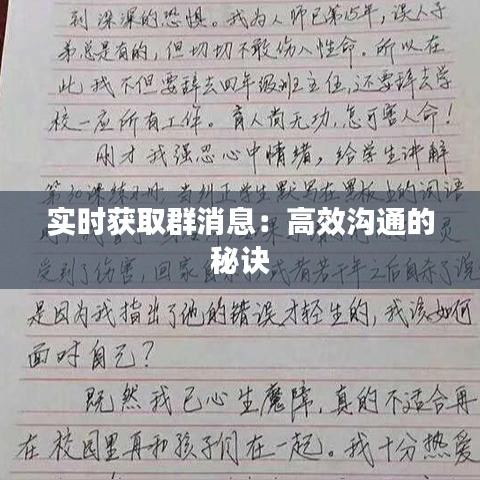 到深深的恐惧。我为人师已第15年，误人子
弟总是有的，但切切不敢伤人性命。所以在
此，我不但要辞去四年级班主任，还要辞去学
校一应所有工作。育人尚无功，怎可害人命！
刚才我强忍心中情绪，给学生讲解
当纠正学生默写在黑板上的词语
实时获取群消息：高效沟通的
秘诀
受到了伤害，回家自杀，或者若干年之后自杀了说
是因为我指出了他的错误才轻生的，我该如何
面对自己？
既然我已心生魔障，真的不适合再
在校园里再和孩子们在一起。我十分热爱